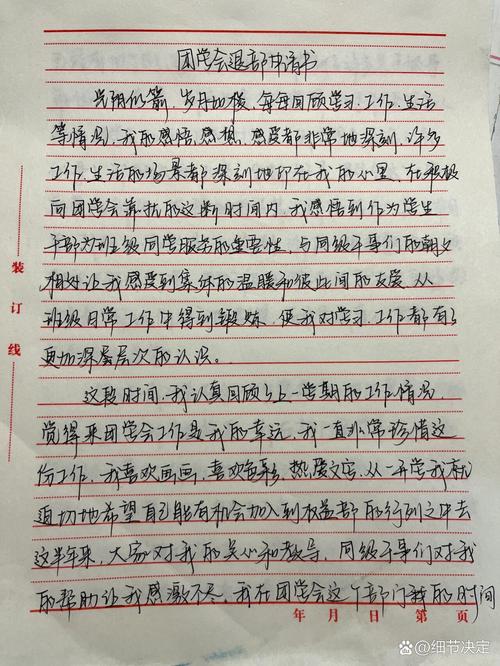 团学会退部申请书
光阴似箭,岁月如梭,每每回顾学习、工作、生活
等情况,我的感悟、感想、感受都非常地深刻,许多
工作、生活的场景都深刻地印在我的心里,在积极
向团学会靠拢的这断时间内,我感悟到作为学生
干部为班级同学服务的重要性,与同级干事们的朝夕
相处让我感受到集体的温暖和彼此间的友爱,从
班级日常工作中得到锻炼,使我对学习、工作都有了
更加深层层次的认识。
这段时间,我认真回顾了上一学期的工作情况,
觉得来团学会工作是我的幸运,我一直非常珍惜这
份工作,我喜欢画画,喜欢色彩,热爱文字,从一开学我就
迫切地希望自己能有机会加入到权益部的行列之中去
这半年来,大家对我的关心和教导,同级干事们对我
的帮助让我感激不尽,我在团学会这个部门的时间
装订线
年 月 日 第 页
Bai百度 @细节决定